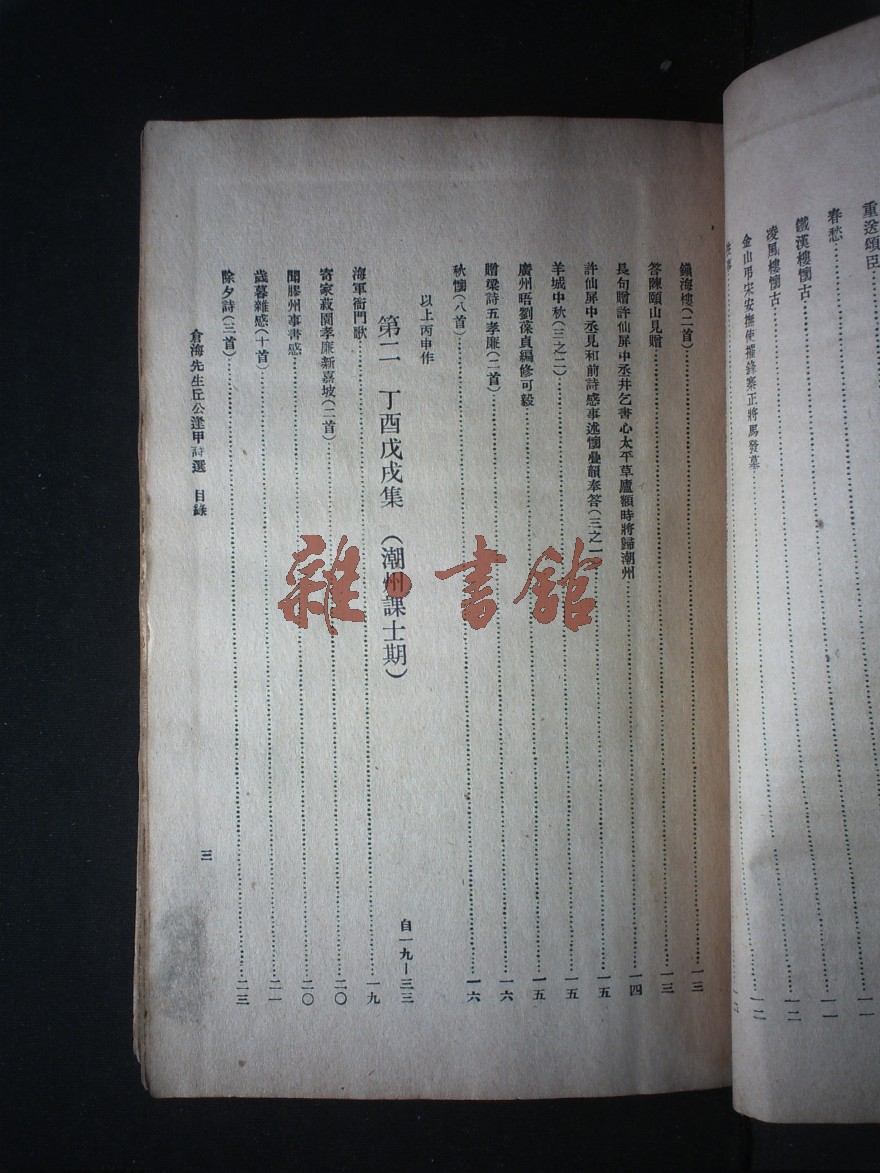 重送頌臣……一一
春愁……一一
鐵漢樓懷古……一二
凌風樓懷古……一二
金山弔宋安撫使摧鋒寨正將馬發墓……一二
鎮海樓(二首)……一三
答陳頤山見贈……一三
長句贈許仙屏中丞幷乞書心太平草廬額時將歸潮州……一四
許仙屏中丞見和前詩感事述懷疊韻奉答(三之一……一五
羊城中秋(三之二)……一五
廣州晤劉葆貞編修可毅……一五
贈梁詩五孝廉(二首)……一六
秋懷(八首)……一六
以上丙申作
第二 丁酉戊戌集 (潮州課士期) 自一九—三三
海軍衙門歌……一九
寄家菽園孝廉新嘉坡(二首)……二〇
聞膠州事書感……二〇
歲暮雜感(十首)……二一
除夕詩(三首)……二三
倉海先生丘公逢甲詩選 目錄
三
雜·書館